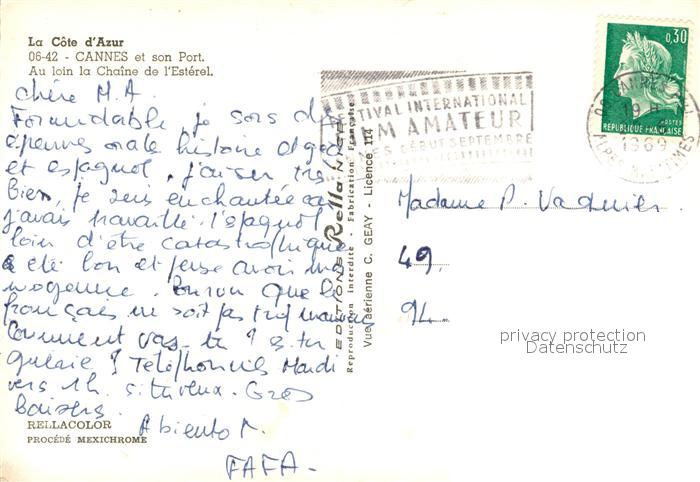 La Côte d'Azur
06-42 - CANNES et son Port.
Au loin la Chaîne de l'Estérel.
Chère M.A.
Formidable je sors des
épreuves orale histoire et géo
et espagnol, j'ai ser très
bien, je suis enchantée car
j'avais travaillé. l'espagnol
loin d'être catastrophique
a été bon et pense avoir ma
moyenne. Pourvu que le
français ne soit pas trop mauvais
Comment vas-tu ? es-tu
guérie ? Téléphones Mardi
vers 1h. si tu veux. Gros
Baisers.
A biento M.
FAFA-
RELLACOLOR
PROCÉDÉ MEXICHROME
EDITIONS Rella NICE
Reproduction Interdite - Fabrication Française
Vue aérienne C. GEAY - Licence 114
FESTIVAL INTERNATIONAL
FILM AMATEUR
CANNES DÉBUT SEPTEMBRE
CANNES
19
1969
ALPES MARITIMES
0,30
POSTES
REPUBLIQUE FRANÇAISE
Madame P. Vaquier.
49.
94
privacy protection
Datenschutz